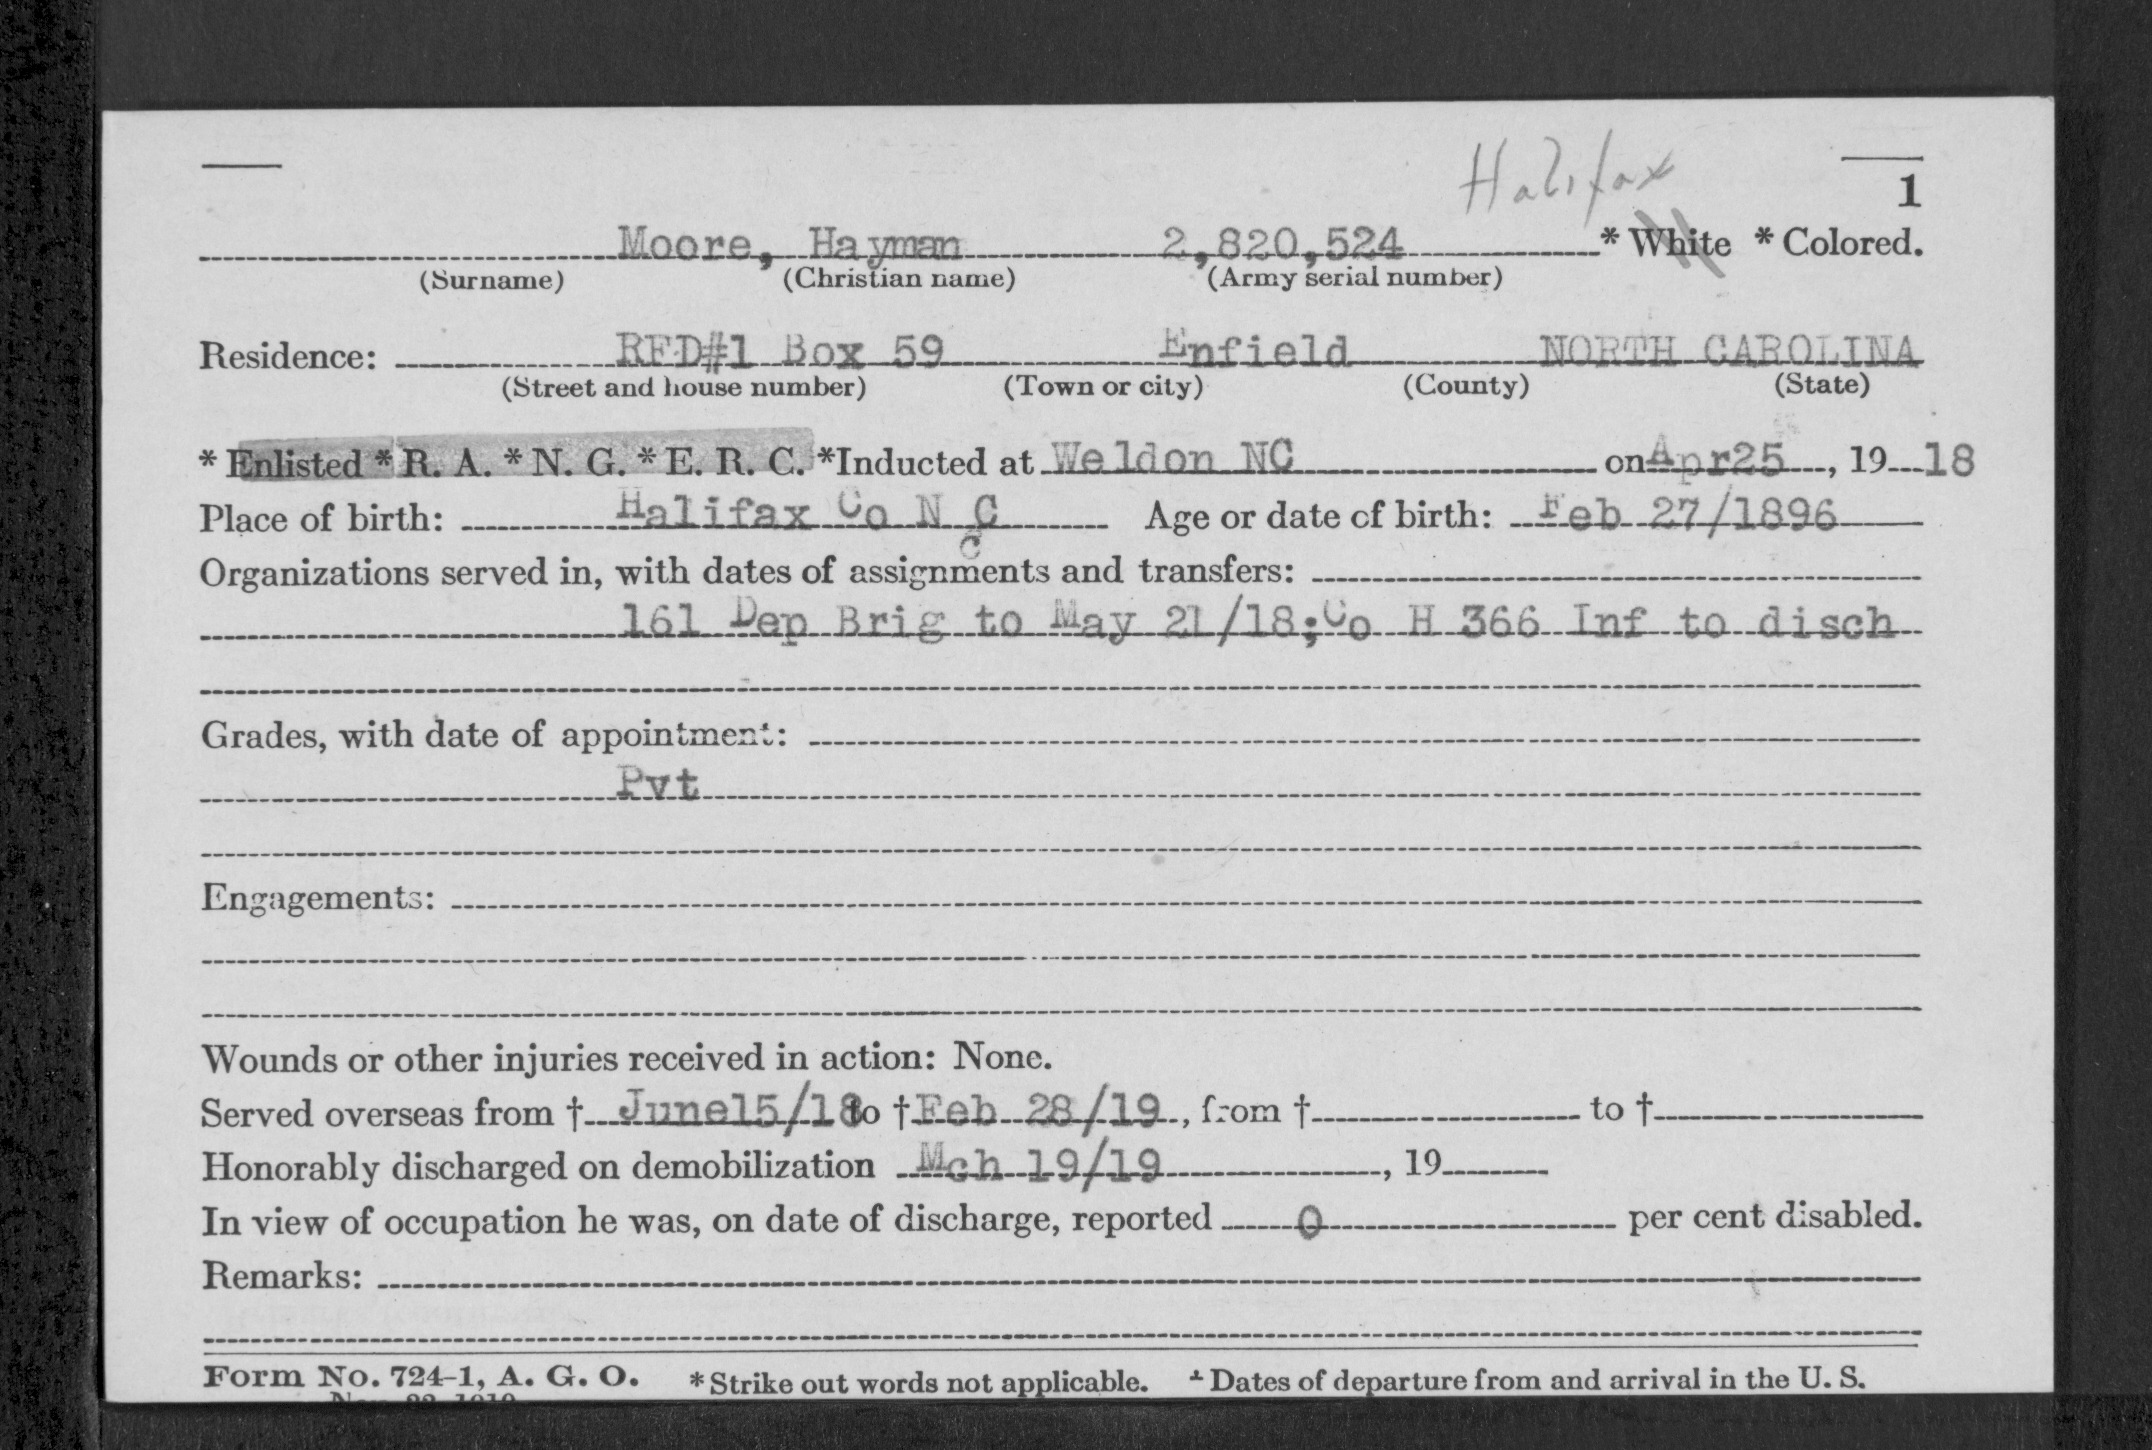 Halifax
1
Moore, Hayman 2,820,524 * White * Colored.
(Surname) (Christian name) (Army serial number)
Residence: RFD#1 Box 59 Enfield NORTH CAROLINA
(Street and house number) (Town or city) (County) (State)
* Enlisted * R. A. * N. G. * E. R. C. *Inducted at Weldon NC on Apr25, 19 18
Place of birth: Halifax Co N C Age or date of birth: Feb 27/1896
c
Organizations served in, with dates of assignments and transfers:
161 Dep Brig to May 21/18;Co H 366 Inf to disch
Grades, with date of appointment:
Pvt
Engagements:
Wounds or other injuries received in action: None.
Served overseas from † June15/18 to † Feb 28/19, from † to †
Honorably discharged on demobilization Mch 19/19, 19
In view of occupation he was, on date of discharge, reported 0 per cent disabled.
Remarks:
Form No. 724-1, A. G. O. * Strike out words not applicable. † Dates of departure from and arrival in the U. S.